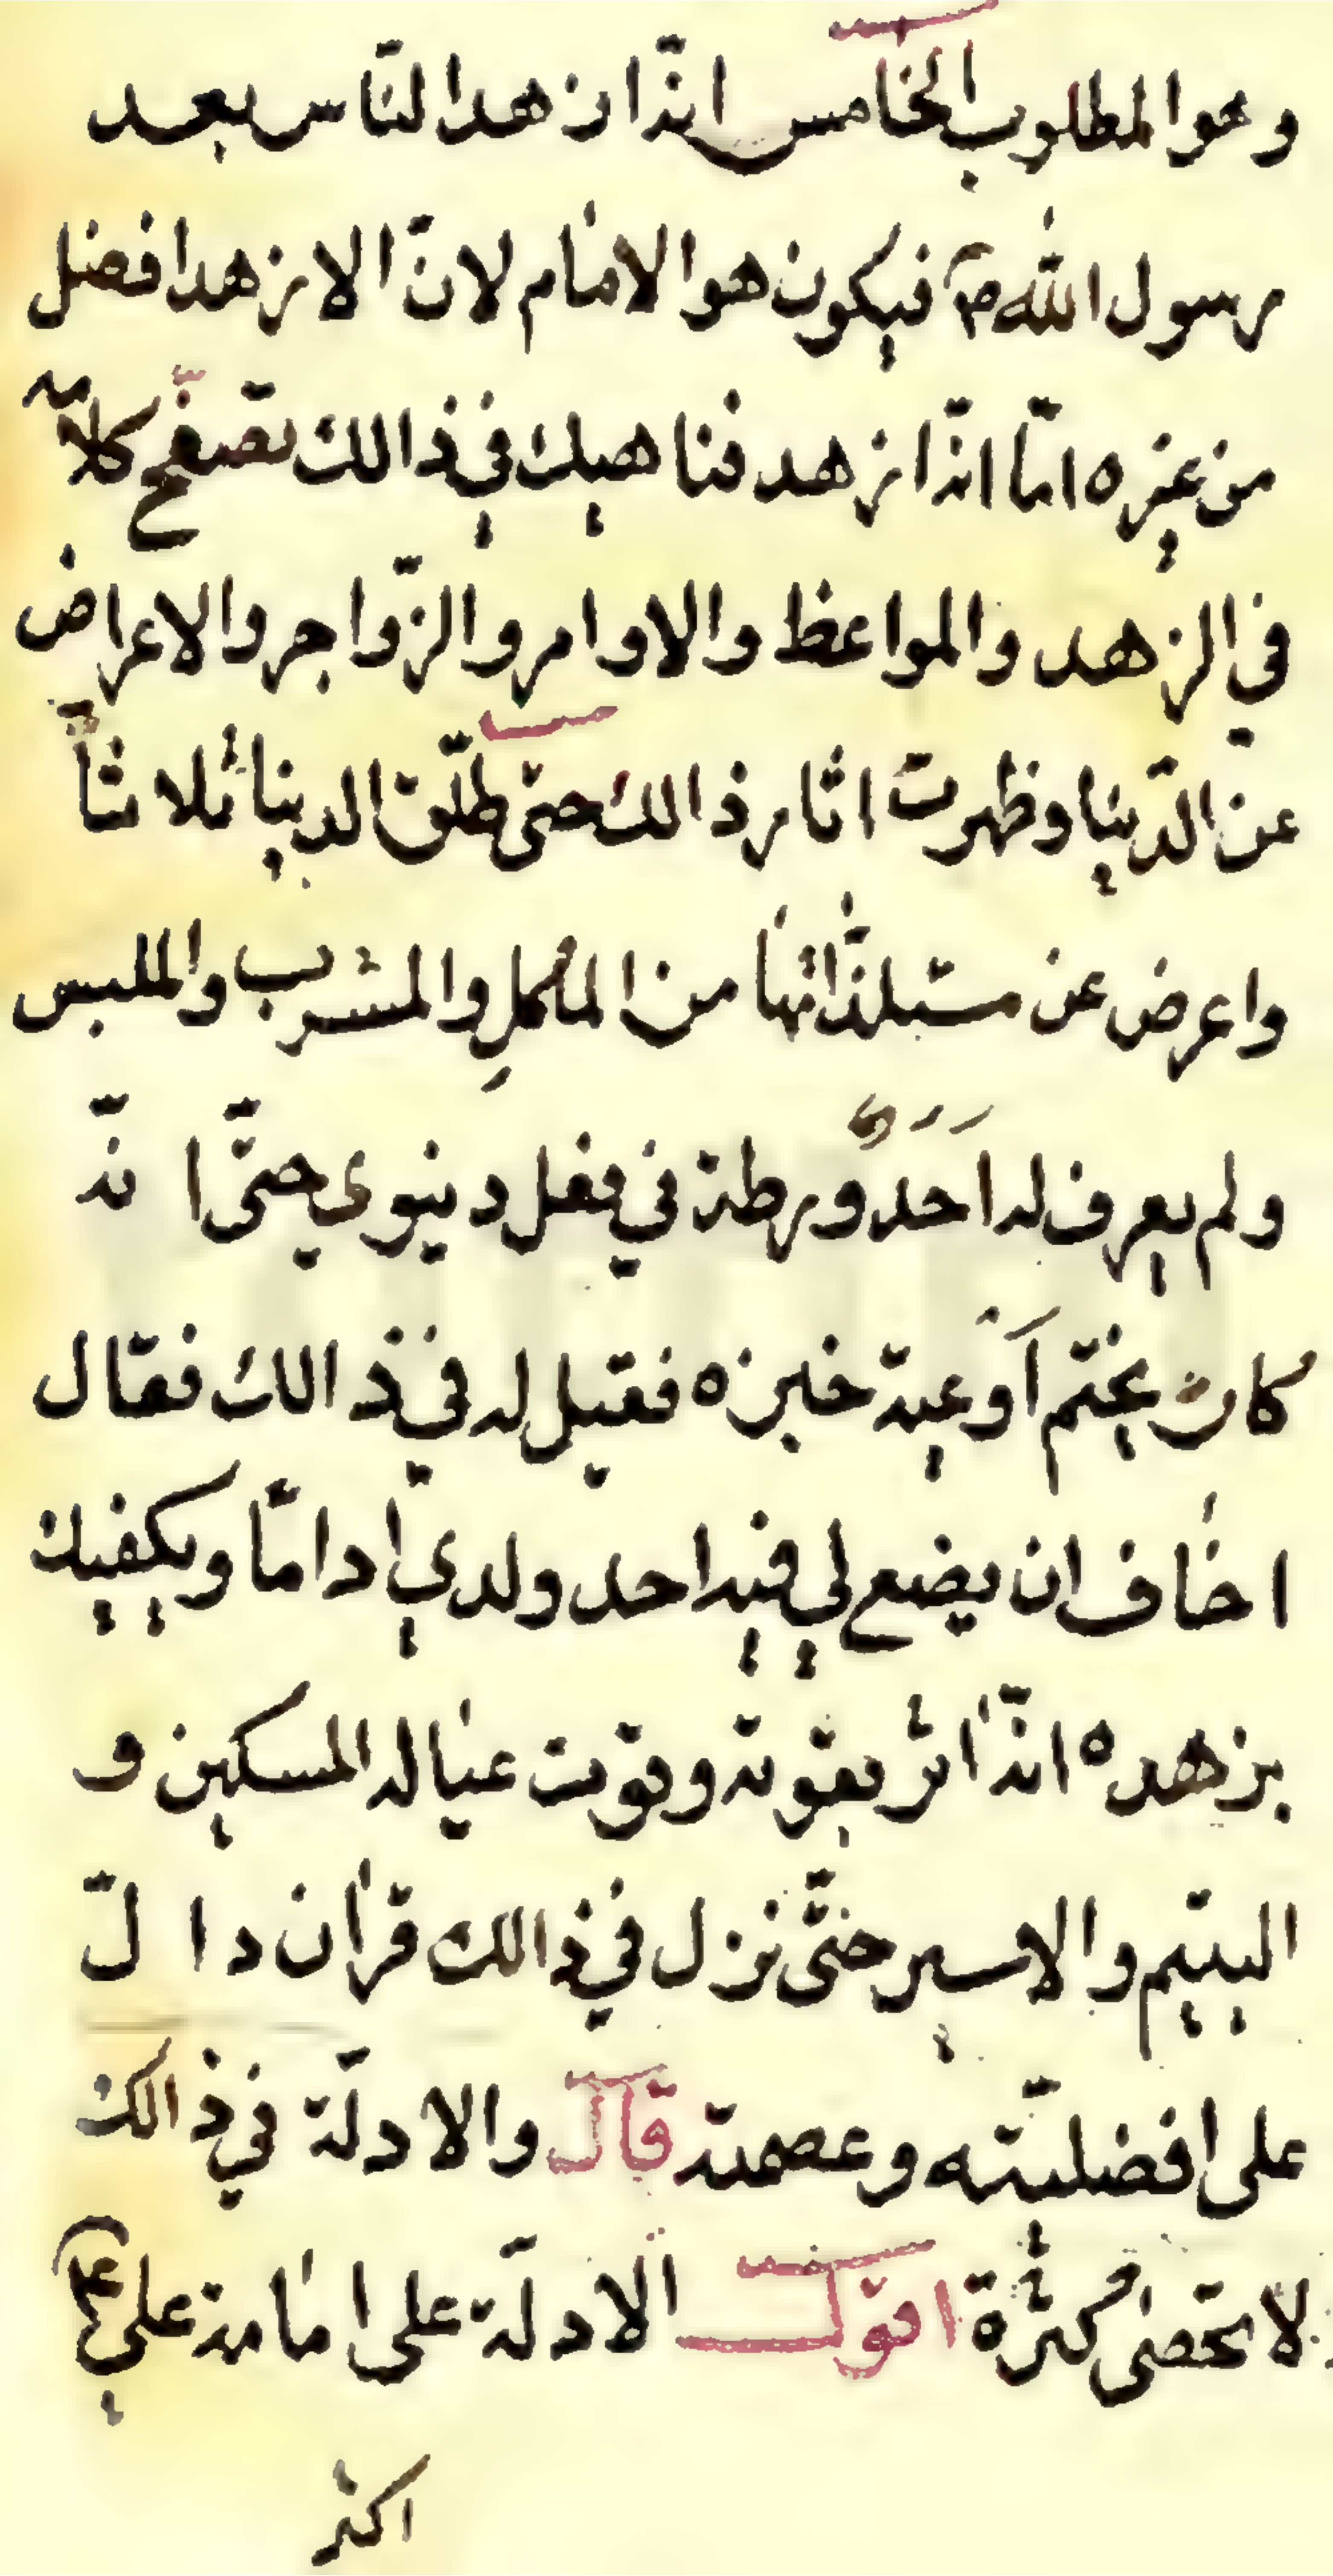 وهو المطلوب الخامس انّه ازهد النّاس بعد
رسول الله ص فيكون هو الامام لانّ الازهد افضل
من غيره امّا انّه ازهد فناهيك في ذالك تصفّح كلامه
في الزهد والمواعظ والاوامر والزّواجر والاعراض
عن الدّنيا وظهرت اثار ذالك حتى طلّق الدنيا ثلاثاً
واعرض عن مستلذّاتها من المأكلِ والمشرب والملبس
ولم يعرف له اَحَدٌ ورطة في فعل دنيوى حتّى انّه
كان يختم اَوعية خبزه فقيل له في ذالك فقال
اخاف ان يضع لي فيه احد ولديّ اداماً ويكفيك
بزهده انّه اثر بقوته وقوت عياله المسكين و
اليتيم والاسير حتّى نزل في ذالك قران دالّ
على افضليّته وعصمته قال والادلّة في ذالك
لا تحصى كثرة اقول الادلّة على امامة علي ع
اكثر